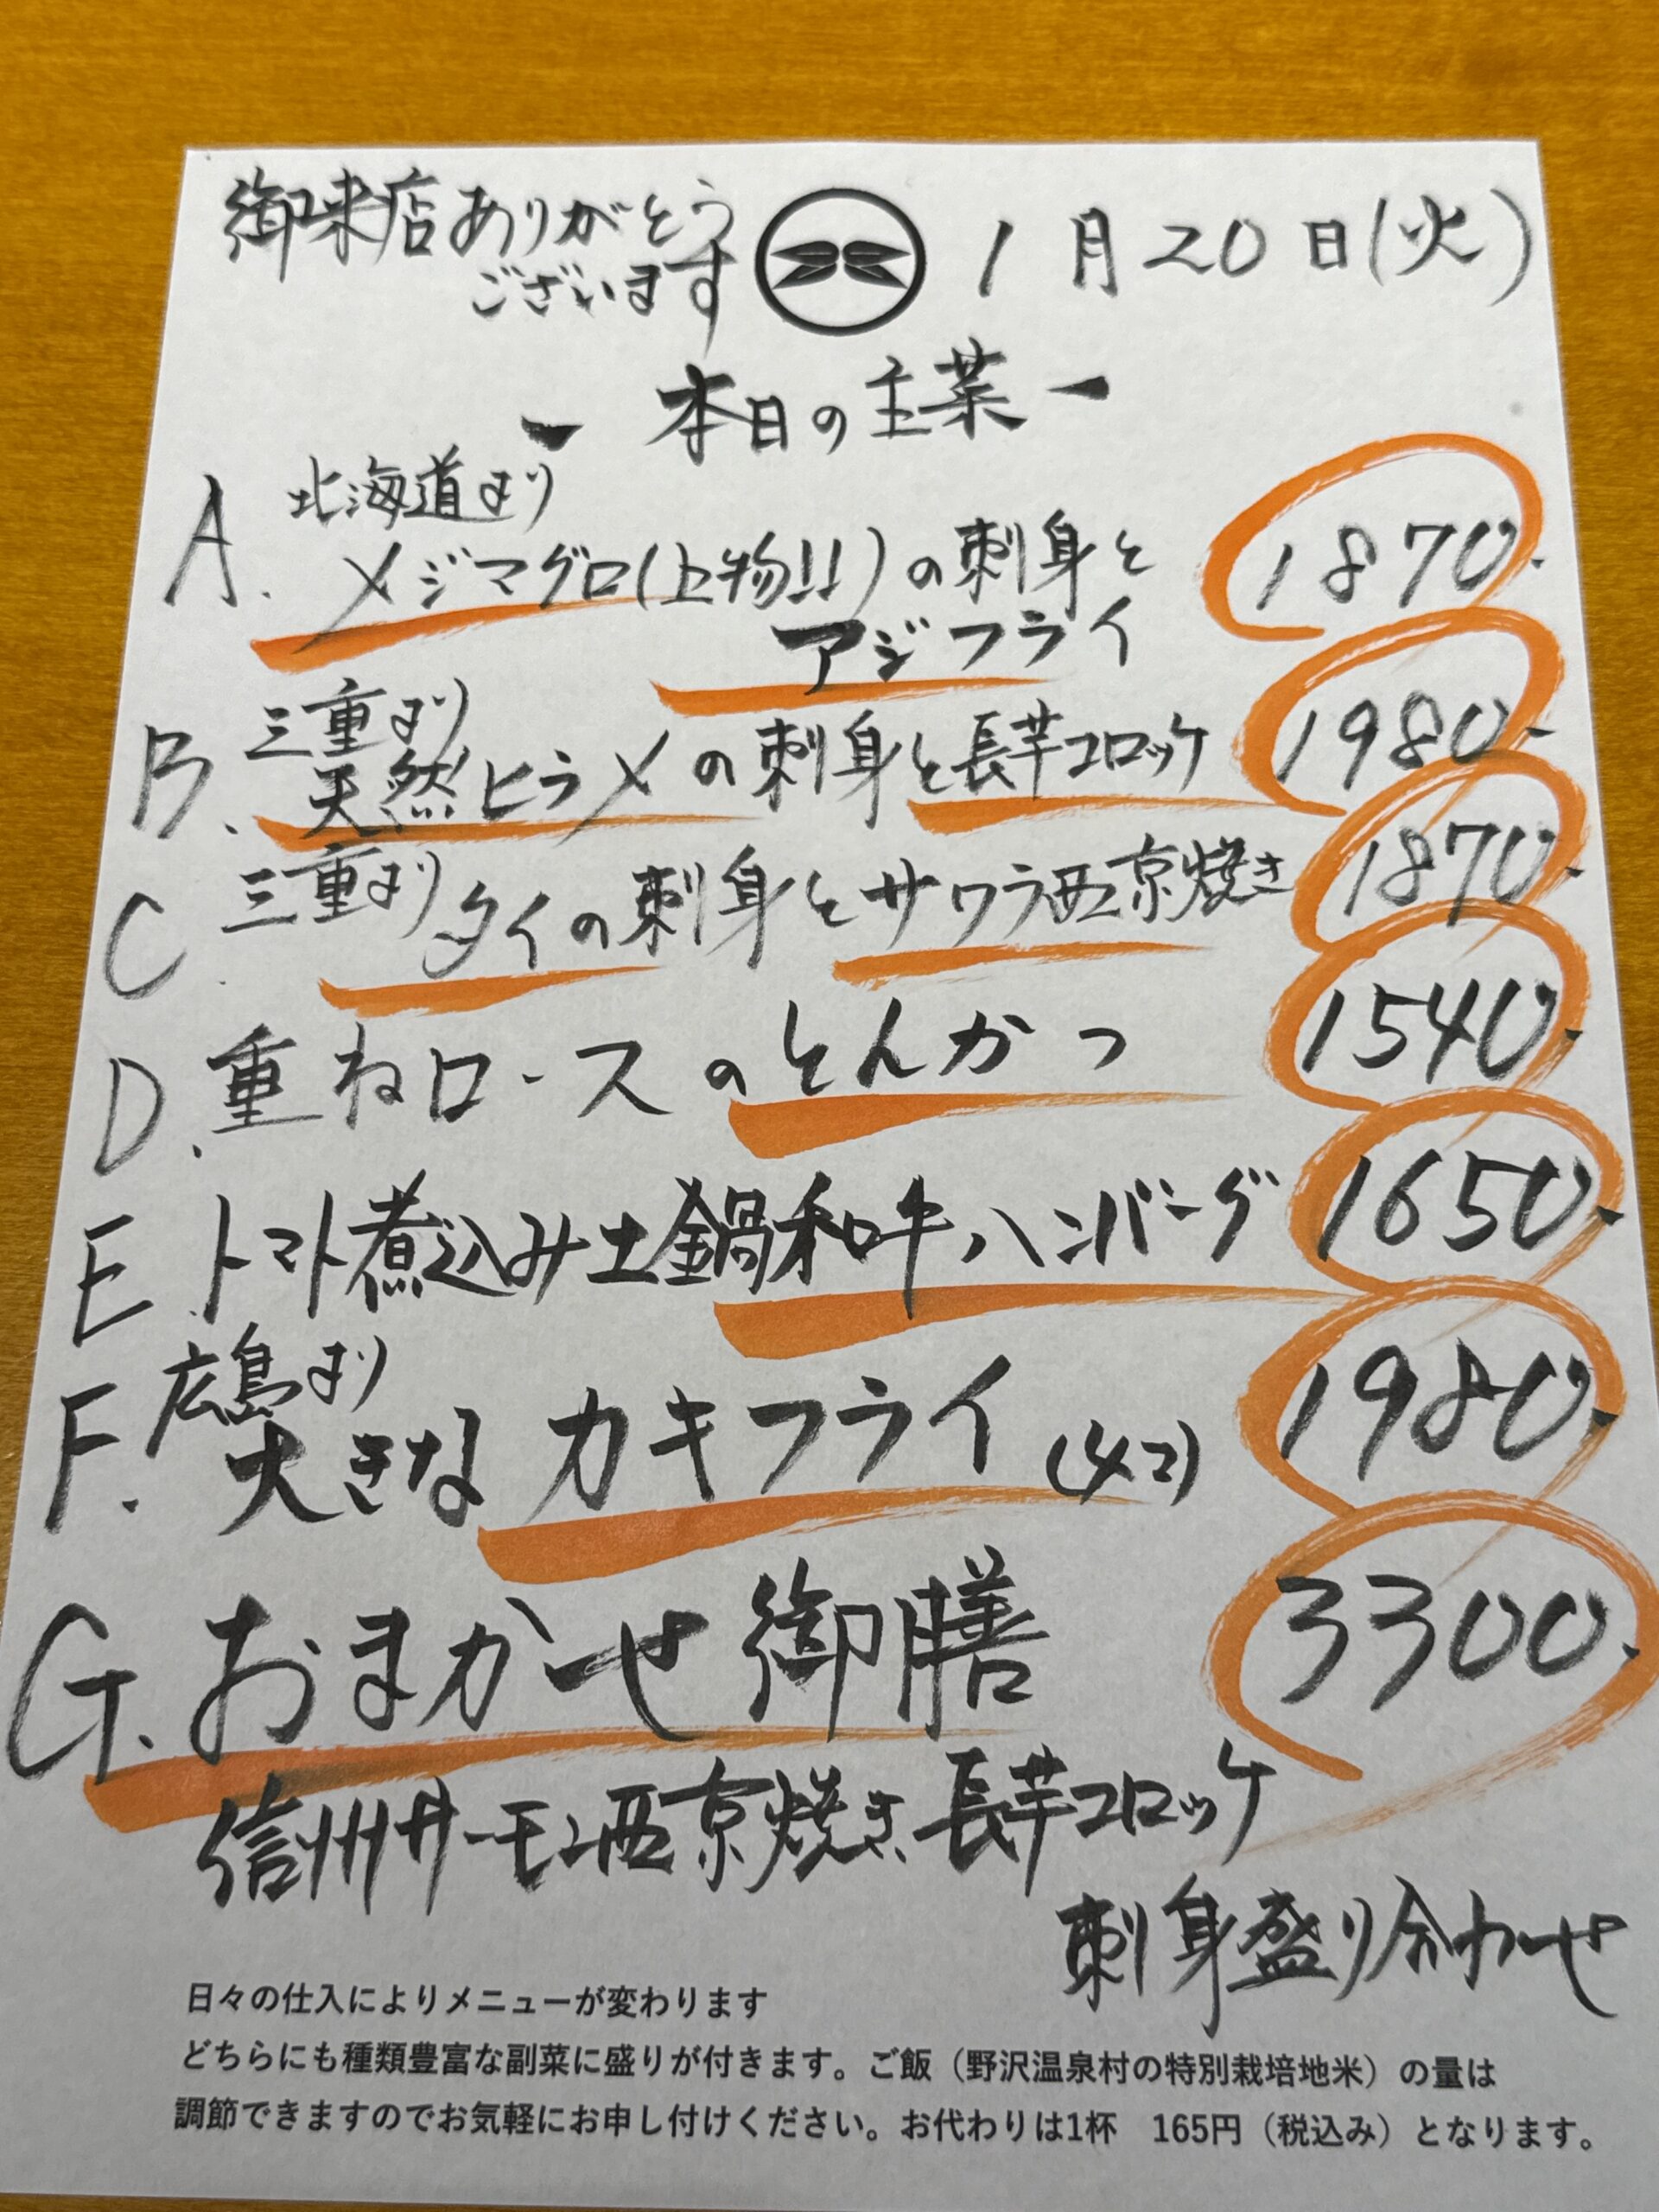 御来店ありがとう
ございます
1月20日(火)
- 本日の主菜 -
A. 北海道より
メジマグロ(上物!!)の刺身と
アジフライ
1870.
B. 三重より
天然ヒラメの刺身と長芋コロッケ
1980.
C. 三重より タイの刺身とサワラ西京焼き
1870.
D. 重ねロースのとんかつ
1540.
E. トマト煮込み土鍋和牛ハンバーグ
1650.
F. 広島より
大きなカキフライ(4コ)
1980.
G. おまかせ御膳
3300.
信州サーモン西京焼き、長芋コロッケ
刺身盛り合わせ
日々の仕入によりメニューが変わります
どちらにも種類豊富な副菜に盛りが付きます。ご飯（野沢温泉村の特別栽培地米）の量は
調節できますのでお気軽にお申し付けください。お代わりは1杯 165円（税込み）となります。